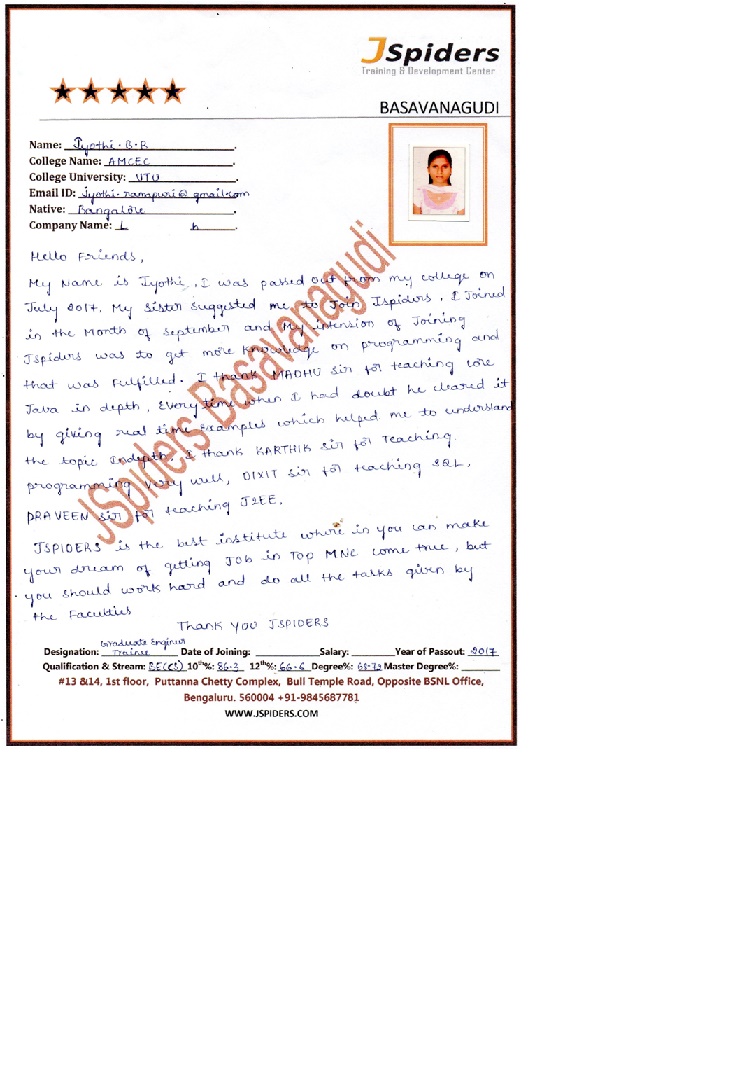 JSpiders
Training & Development Center
BASAVANAGUDI
Name: Jyothi. B. R
College Name: AMCEC
College University: VTU
Email ID: jyothi.rampuri@gmail.com
Native: Bangalore
Company Name: L h
Hello Friends,
My Name is Jyothi, I was passed out from my college on
July 2017. My Sister Suggested me to Join Jspiders, I Joined
in the Month of September and My intension of Joining
Jspiders was to get more Knowledge on programming and
that was fulfilled. I thank MADHU sir for teaching core
Java in depth, Every time when I had doubt he cleared it
by giving real time Examples which helped me to understand
the topic Indepth, I thank KARTHIK sir for Teaching
programming very well, DIXIT sir for teaching SQL,
PRAVEEN sir for teaching J2EE.
JSPIDERS is the best institute where in you can make
your dream of getting JOB in TOP MNC come true, but
you should work hard and do all the tasks given by
the Faculties
THANK YOU JSPIDERS
JSpiders Basavanagudi
Graduate Engineer
Designation: Trainee Date of Joining: Salary: Year of Passout: 2017
Qualification & Stream: BE(CS) 10th%: 86.3 12th%: 66.6 Degree%: 68.72 Master Degree%:
#13 &14, 1st floor, Puttanna Chetty Complex, Bull Temple Road, Opposite BSNL Office,
Bengaluru. 560004 +91-9845687781
WWW.JSPIDERS.COM